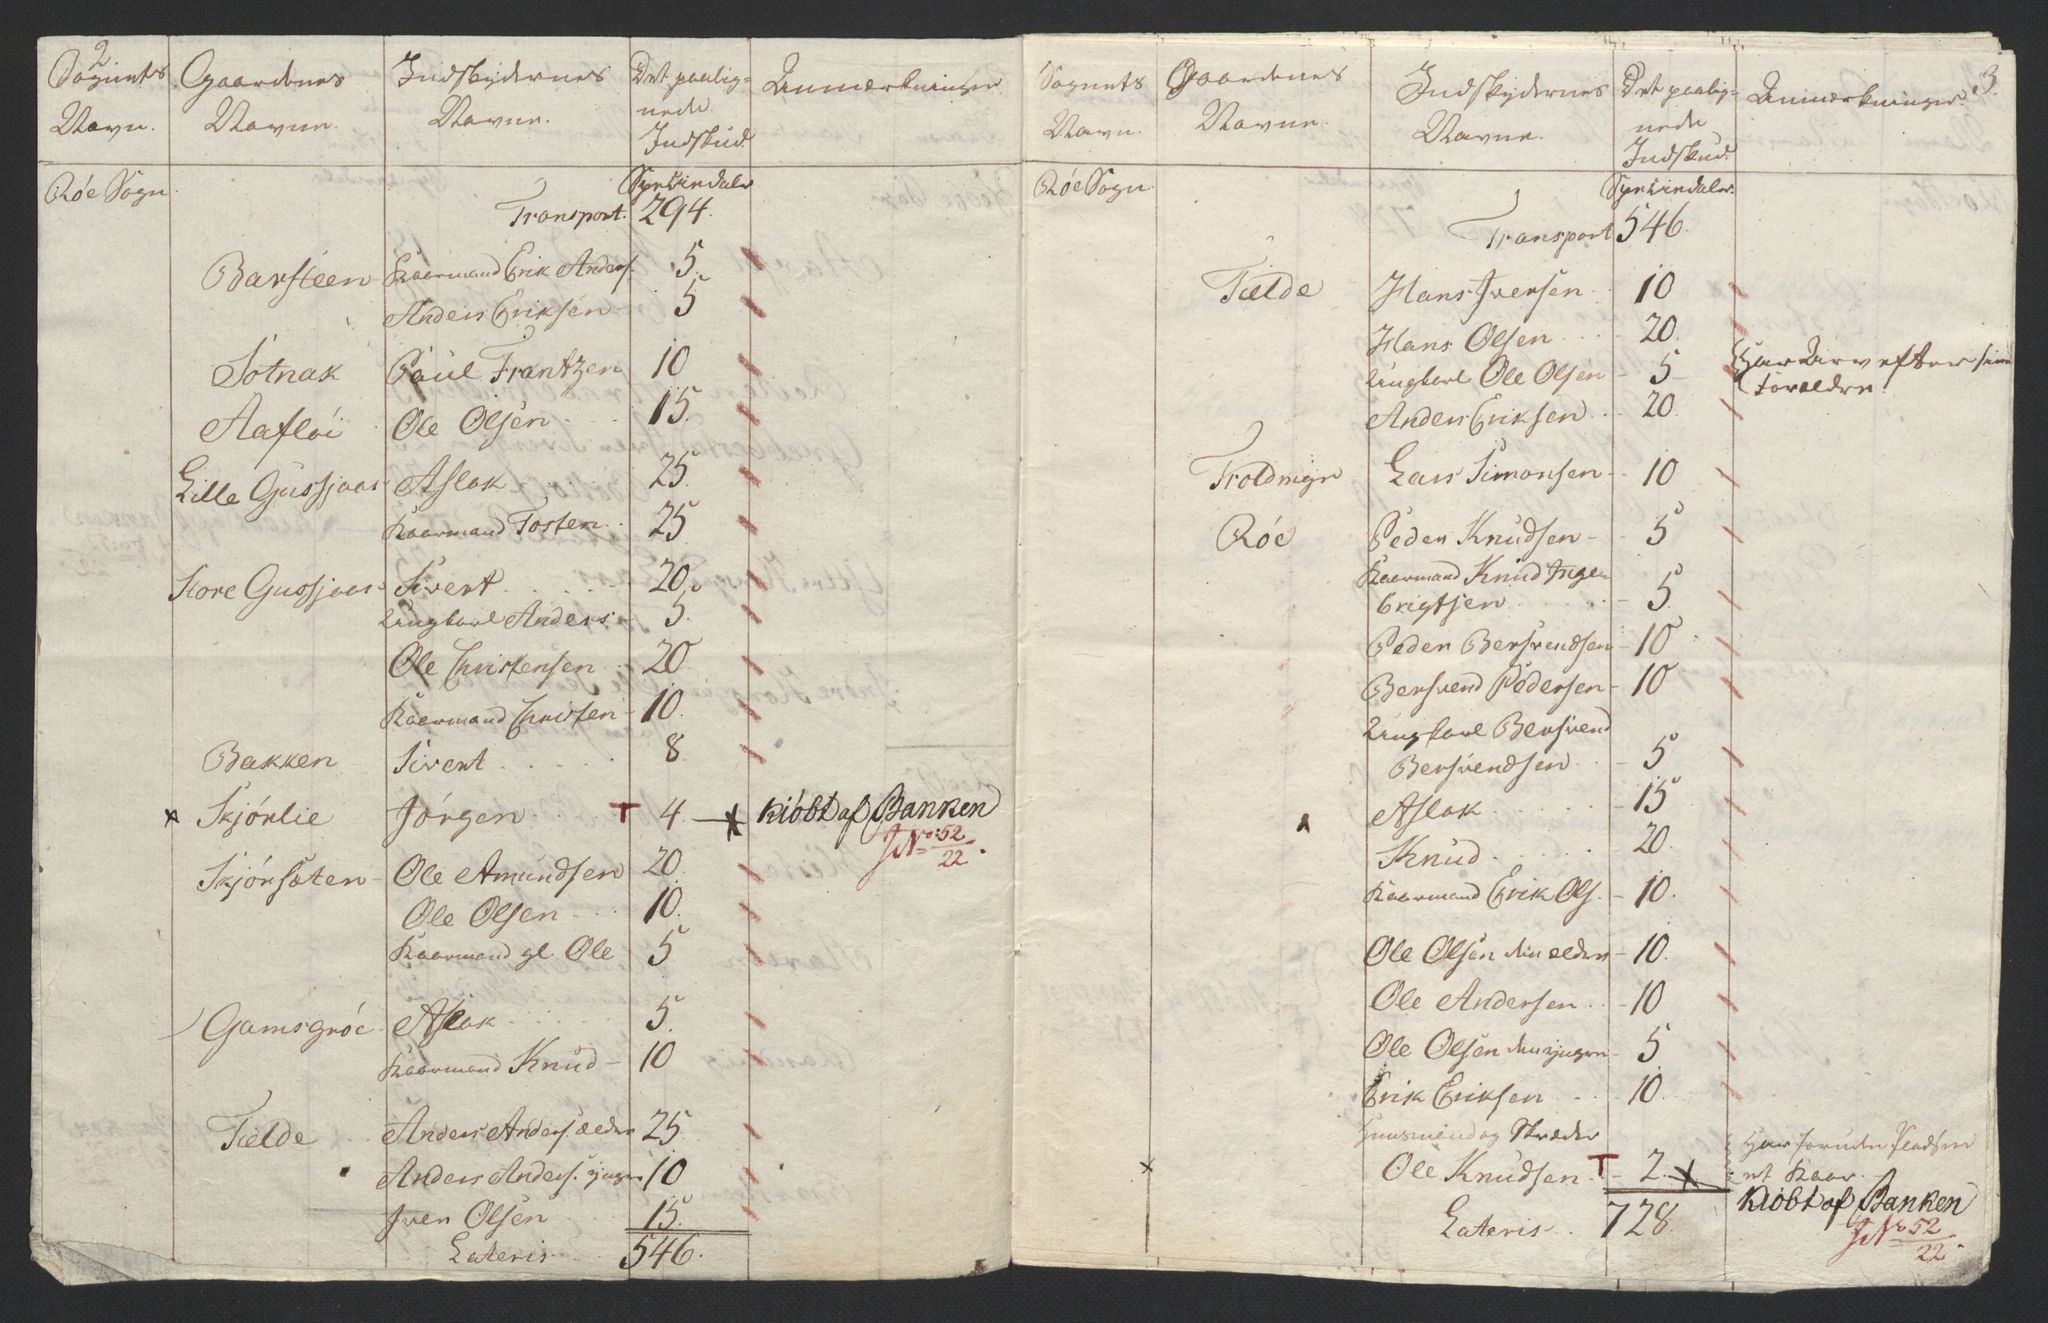 2
Sognets Navn. Gaardenes Navne. Indskydernes Navne. Det paalignede Indskud. Anmærkninger
Røe Sogn. Speciedaler
Transport. 294.
Barsteen Kaarmand Erik Anders. 5.
Anders Eriksen 5
Sotnak Poul Frantzen 10
Aafløi Ole Olsen 15.
Lille Gussjaas Aslak 25.
Kaarmand Tosten 25
Store Gussjaas Sivert 20.
Ungkarl Anders 5.
Ole Christensen 20
Kaarmand Christen 10.
Bakken Sivert 8.
x Skjørlie Jørgen T 4. x Kiøbt af Banken
J No 52/22.
Skjørsæten Ole Amundsen 20.
Ole Olsen 10.
Kaarmand gl. Ole 5
Gamsgrøe Aslak 5.
Kaarmand Knud 10
Tielde Anders Anders. ælder 25.
Anders Anders. yngre 10
Iver Olsen 15.
Lateris 546.
3.
Sognets Navn. Gaardenes Navne. Indskydernes Navne. Det paalignede Indskud. Anmærkninger.
Røe Sogn Speciedaler.
Transport 546.
Tielde Hans Iversen 10
Hans Olsen 20.
Ungkarl Ole Olsen 5 Har Arv efter sine
Forældre.
Anders Eriksen 20.
Troldmyr Lars Simonsen 10
Røe Peder Knudsen 5
Kaarmand Knud Inge-
brigtsen 5.
Peder Bersvendsen 10
Bersvend Pedersen 10
Ungkarl Bersvend
Bersvendsen 5
Aslak 15
Knud 20.
Kaarmand Erik Ols. 10.
Ole Olsen den ælder 10.
Ole Andersen 10
Ole Olsen den yngre 5
Erik Eriksen 10.
Huusmand og Skræder Har foruden Pladsen
x Ole Knudsen T 2. x et Kaar.
Kiøbt af Banken
Lateris 728. J No 52/22.